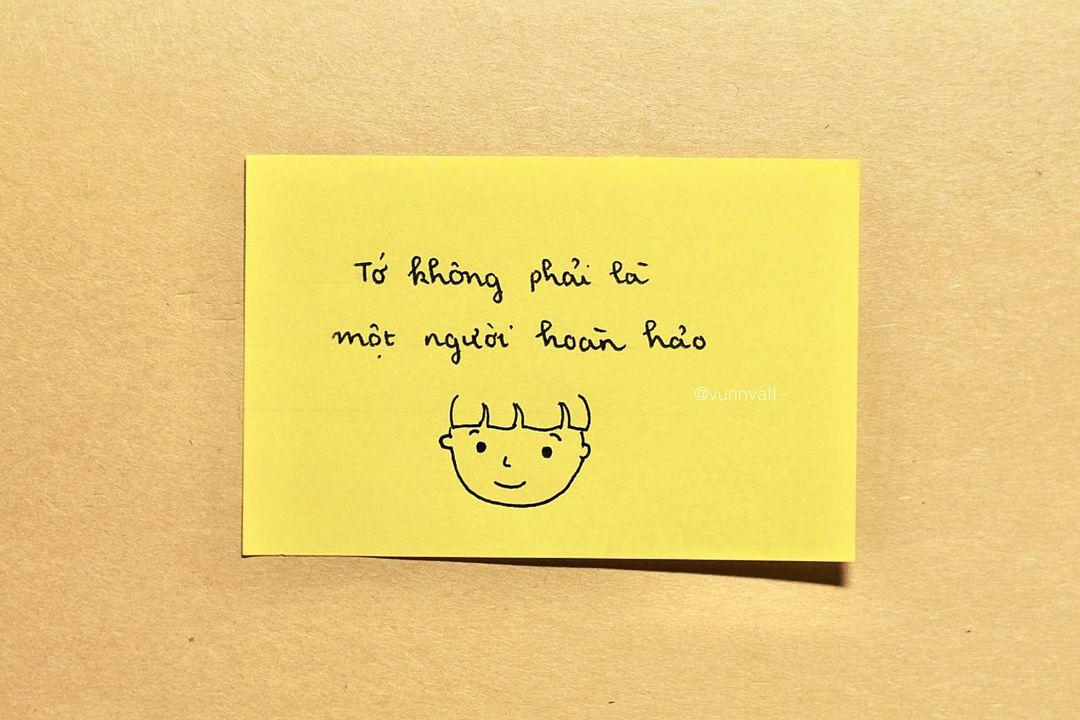 Tớ không phải là
một người hoàn hảo
@vunnvatt